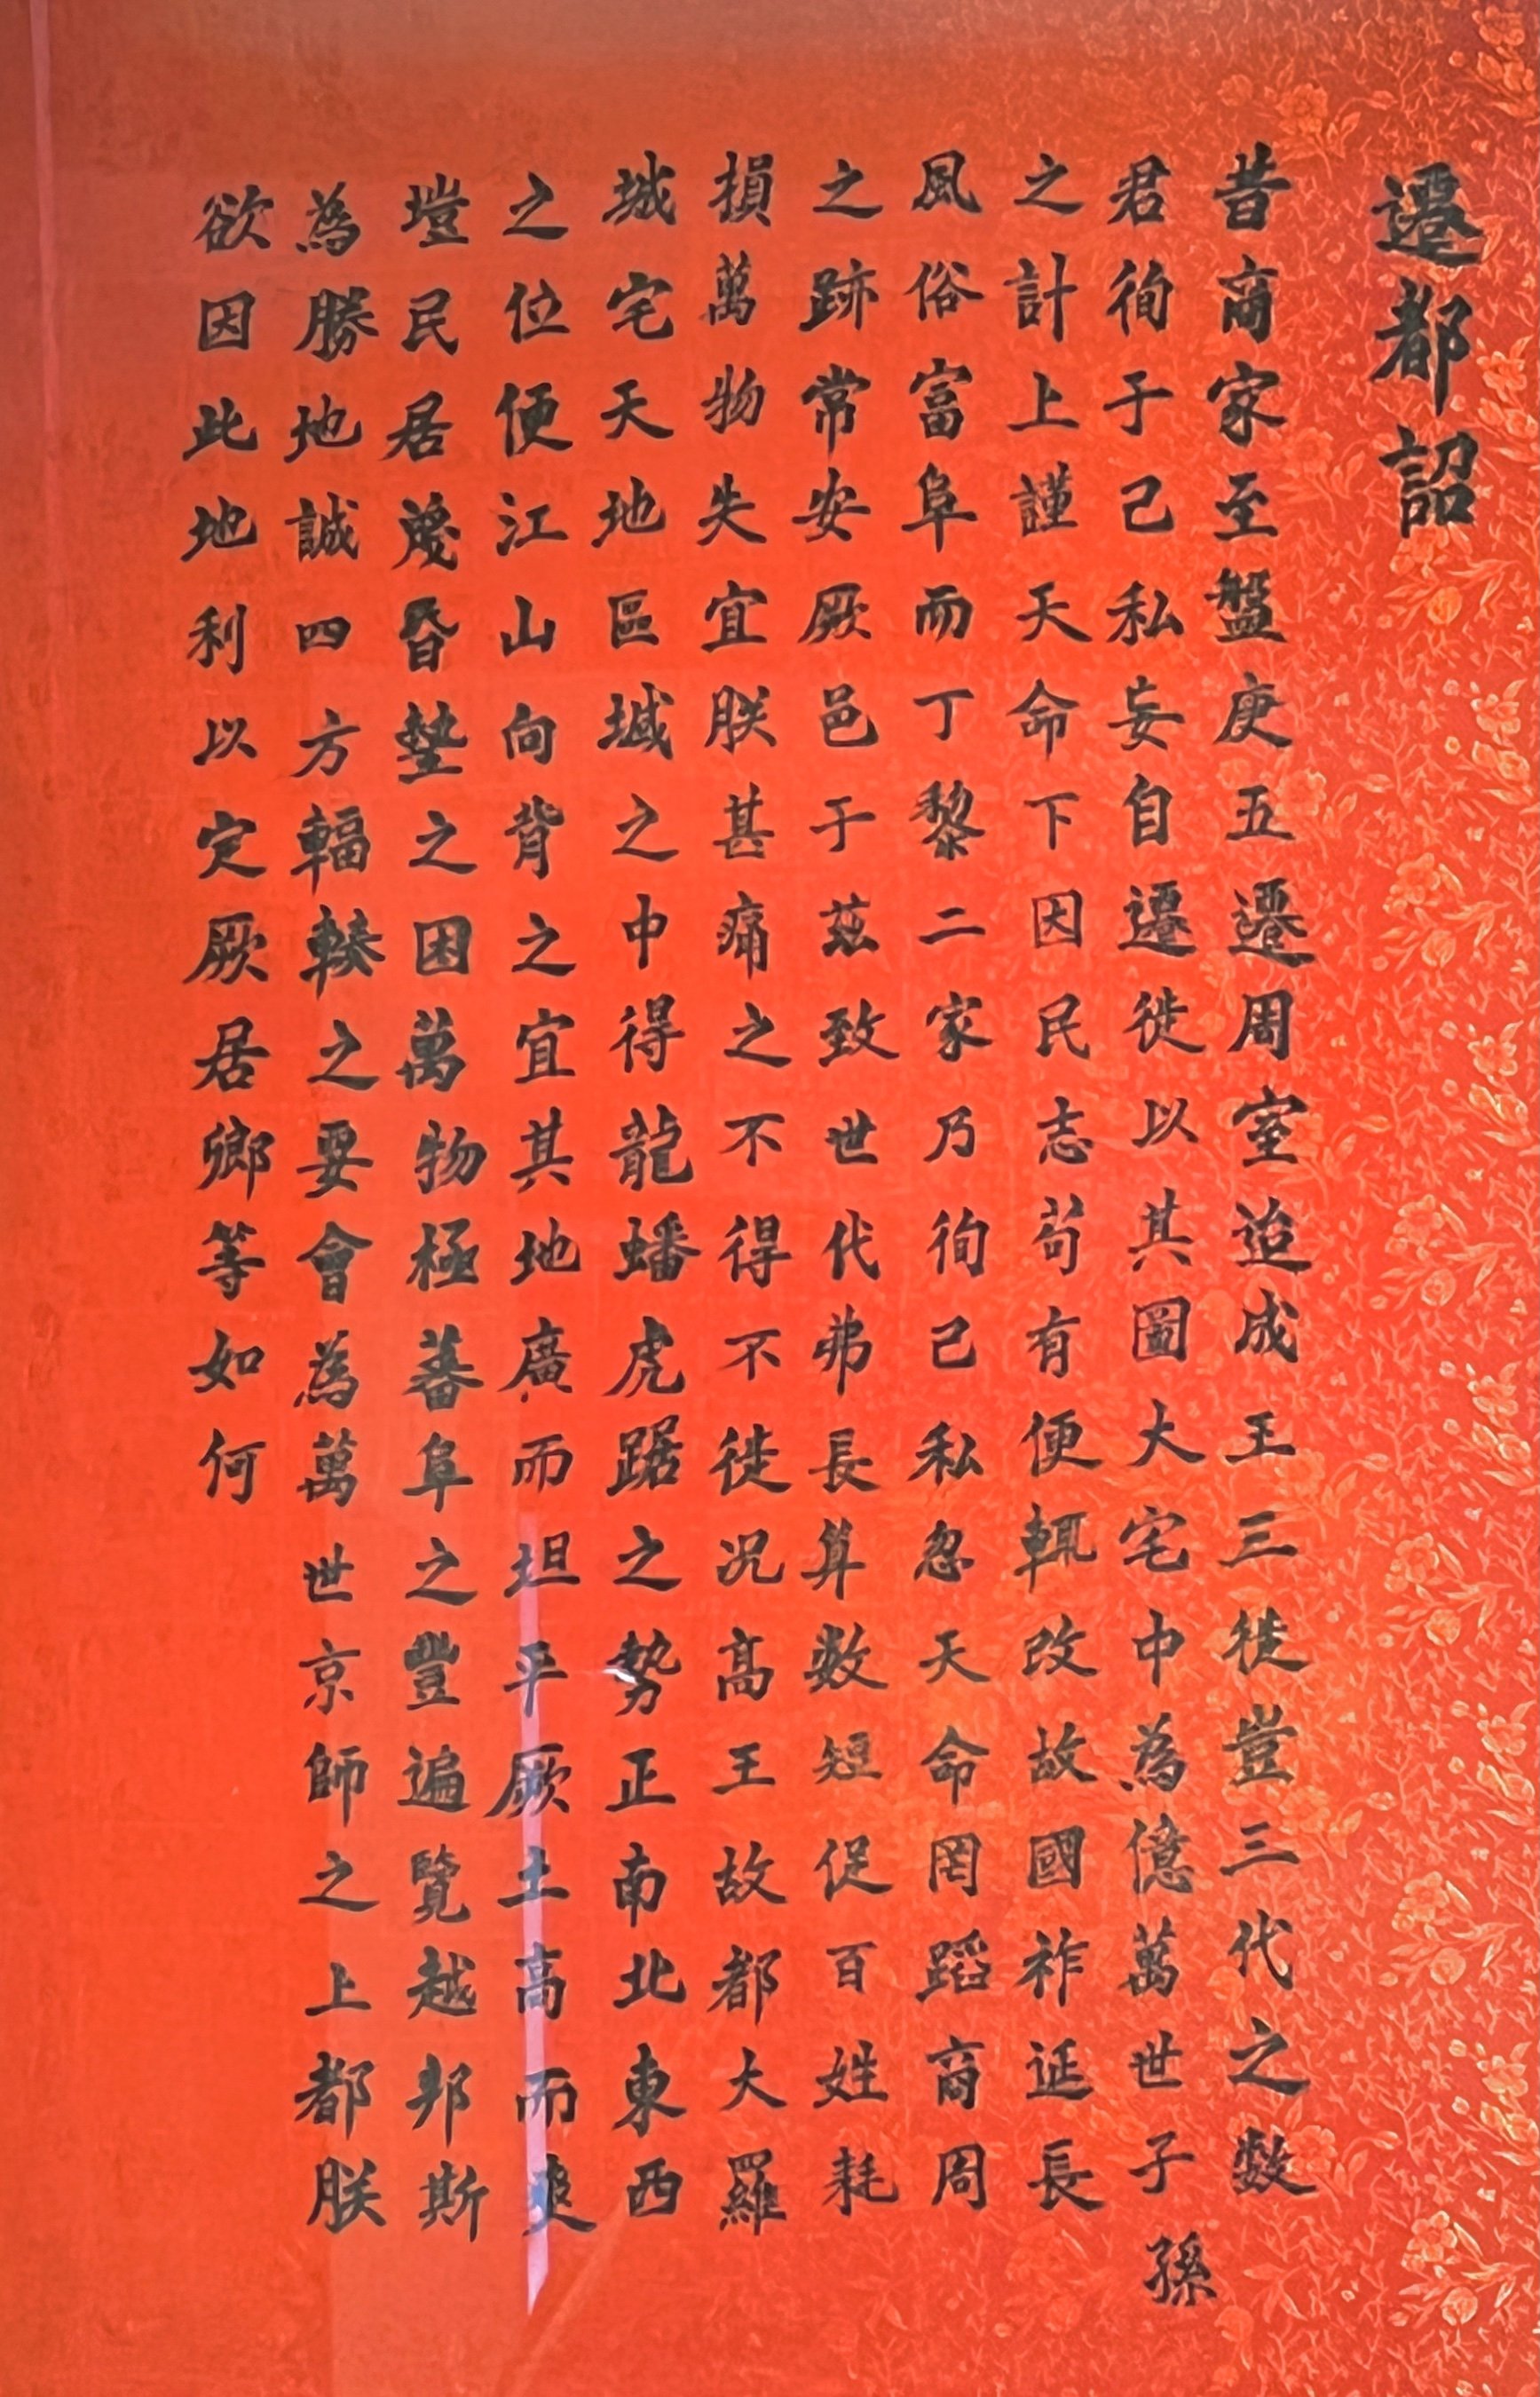 遷都詔
昔商家至盤庚五遷周室迨成王三徙豈三代之數
君徇于己私妄自遷徙以其圖大宅中為億萬世子孫
之計上謹天命下因民志苟有便輒改故國祚延長
風俗富阜而丁黎二家乃徇己私忽天命罔蹈商周
之跡常安厥邑于茲致世代弗長算數短促百姓耗
損萬物失宜朕甚痛之不得不徙況高王故都大羅
城宅天地區域之中得龍蟠虎踞之勢正南北東西
之位便江山向背之宜其地廣而坦平厥土高而爽
塏民居蔑昏墊之困萬物極蕃阜之豐遍覽越邦斯
為勝地誠四方輻輳之要會為萬世京師之上都朕
欲因此地利以定厥居卿等如何